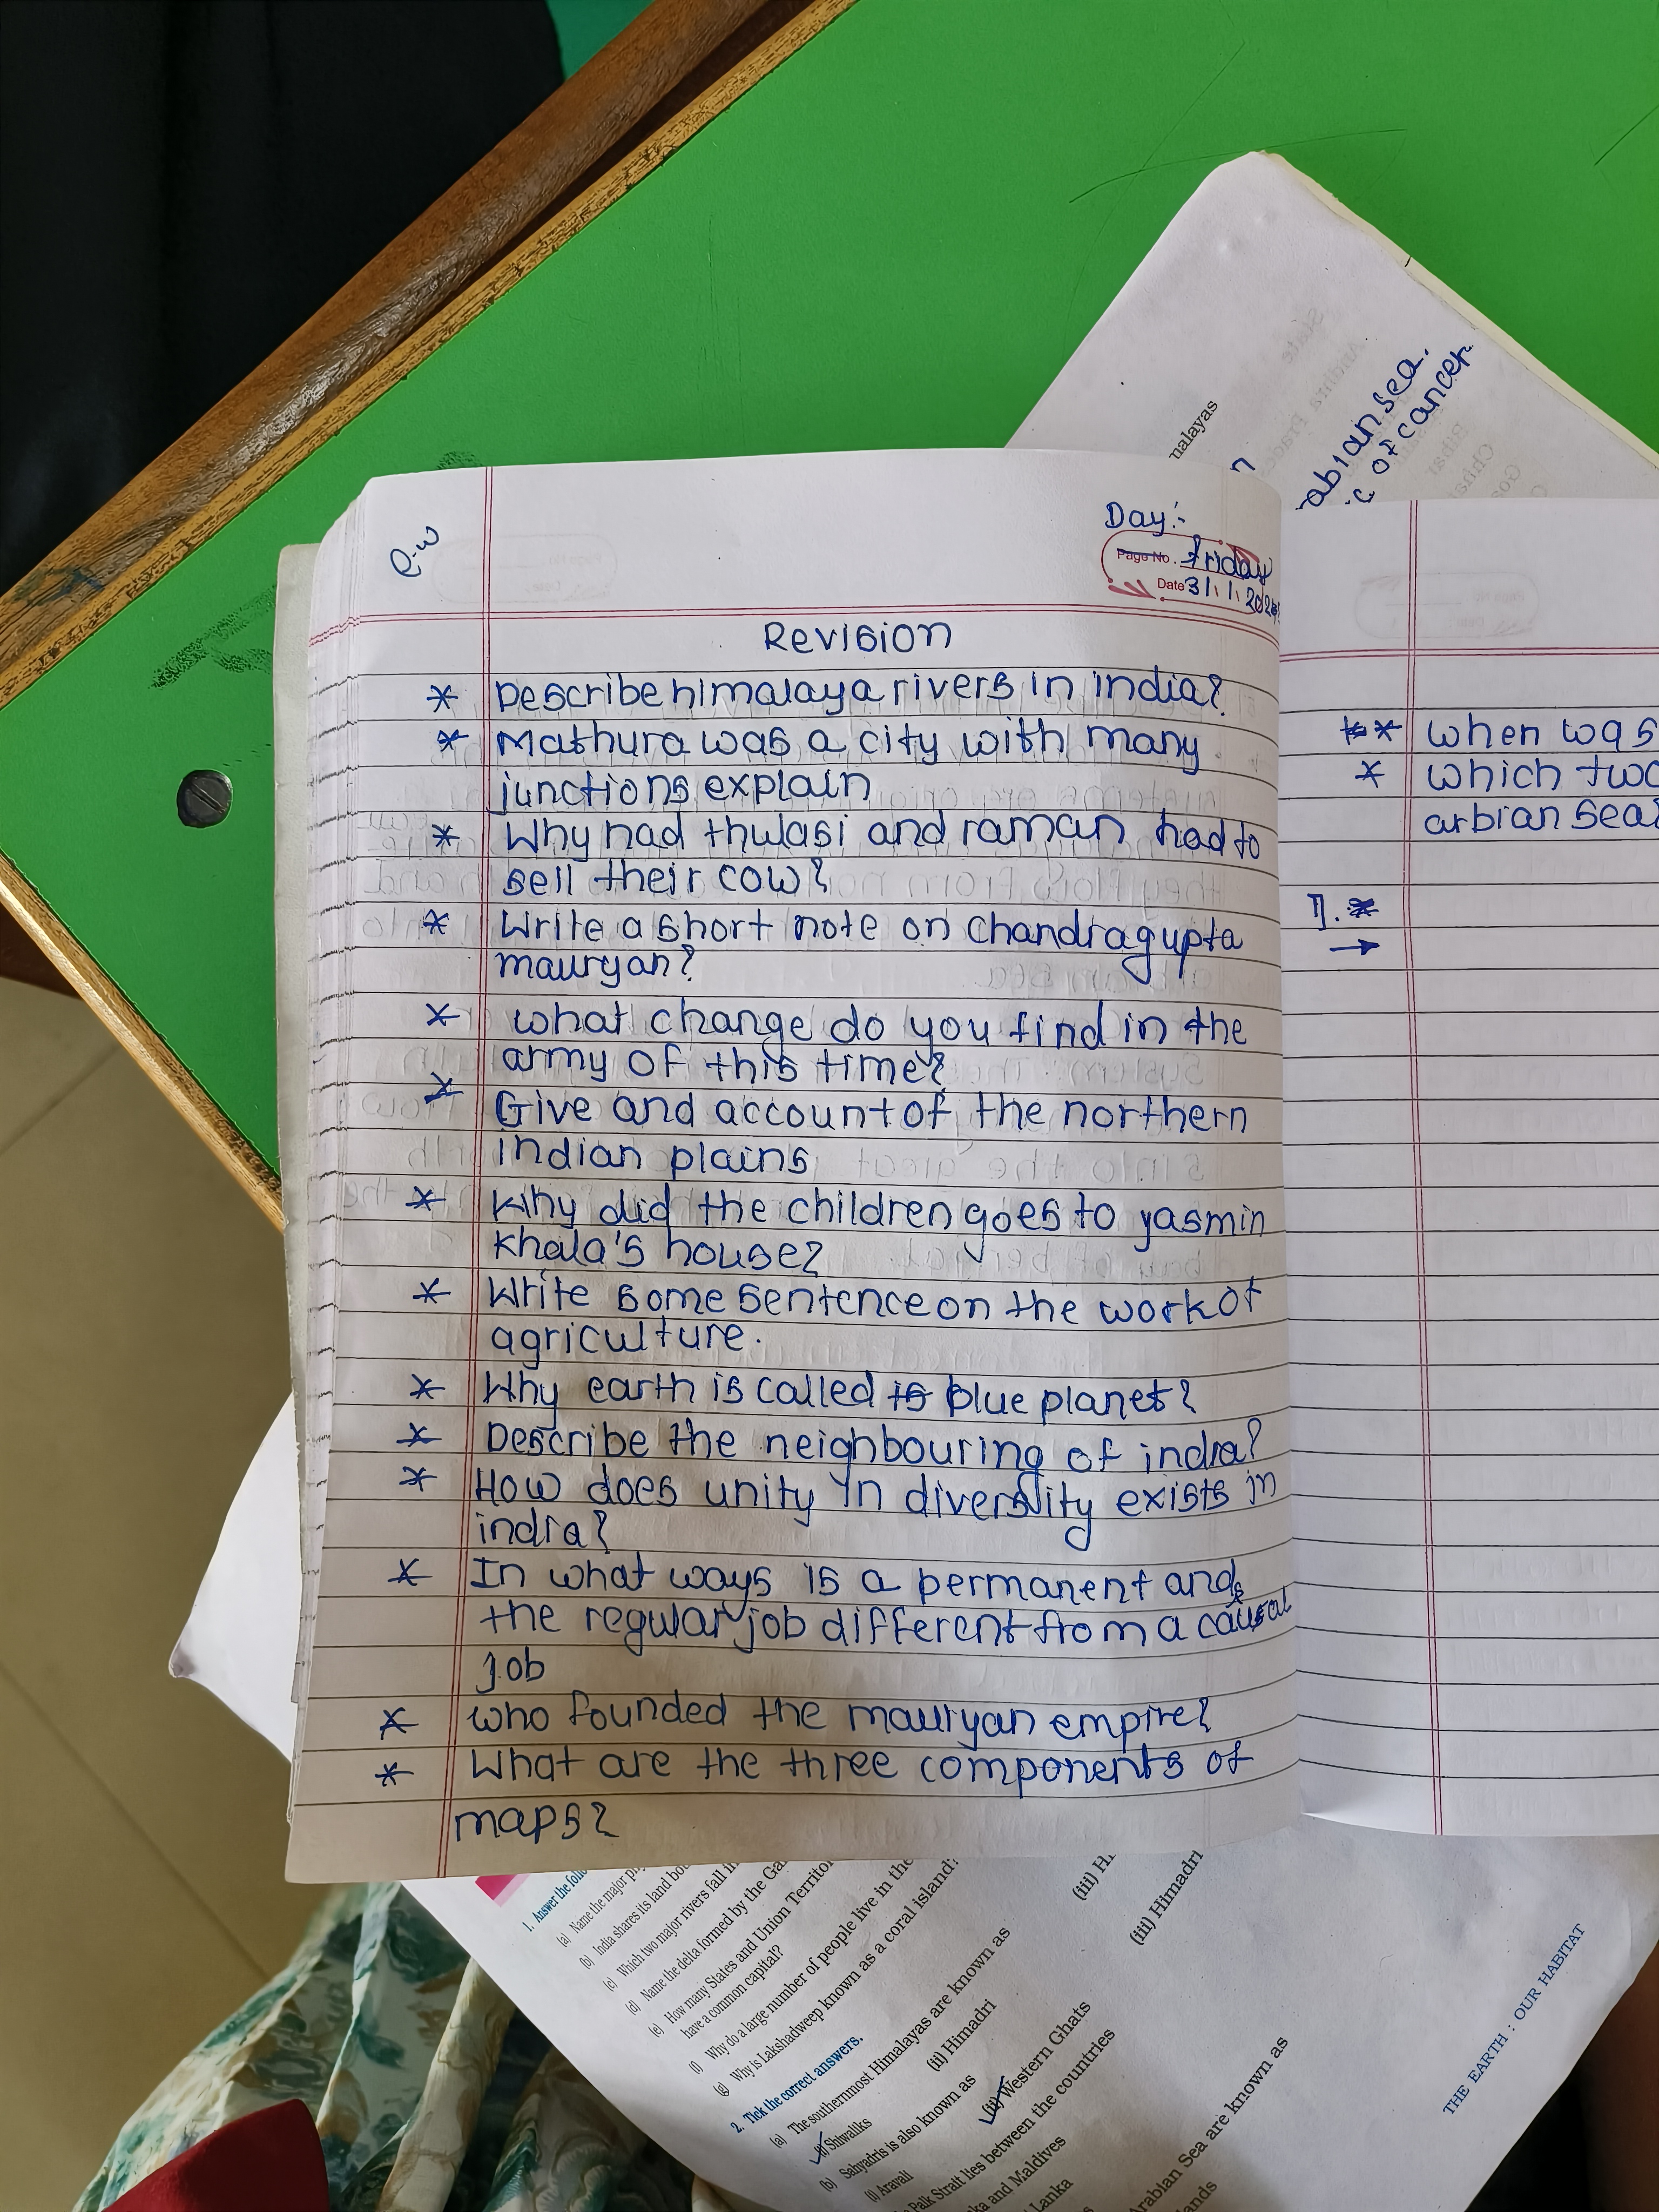 C.w
Day:-
Page No. friday
Date 3/1/202
Revision
* Describe himalaya rivers in india?
* Mathura was a city with many
junctions explain
* Why had thulasi and raman had to
sell their cow?
* Write a short note on Chandragupta
mauryan?
* what change do you find in the
army of this time?
* Give and account of the northern
indian plains
* Why did the children goes to yasmin
khala's house?
* Write some sentence on the work of
agriculture.
* Why earth is called is blue planet?
* Describe the neighbouring of india?
* How does unity in diversity exists in
india?
* In what ways is a permanent and
the regular job different from a causal
job
* who founded the mauryan empire?
* What are the three components of
maps?
** when was
* which two
arbian sea?
7. *
→
malayas
abian sea.
c of cancer
1. Answer the foll
(a) Name the major ph
(b) India shares its land bo
(c) Which two major rivers fall i
(d) Name the delta formed by the Ga
(e) How many States and Union Territo
have a common capital?
(f) Why do a large number of people live in the
(g) Why is Lakshadweep known as a coral island?
2. Tick the correct answers.
(a) The southernmost Himalayas are known as
(i) Shiwaliks
(ii) Himadri
(iii) H
(b) Sahyadris is also known as
(i) Aravali
(ii) Western Ghats
(iii) Himadri
Palk Strait lies between the countries
ka and Maldives
Lanka
Arabian Sea are known as
lands
THE EARTH : OUR HABITAT